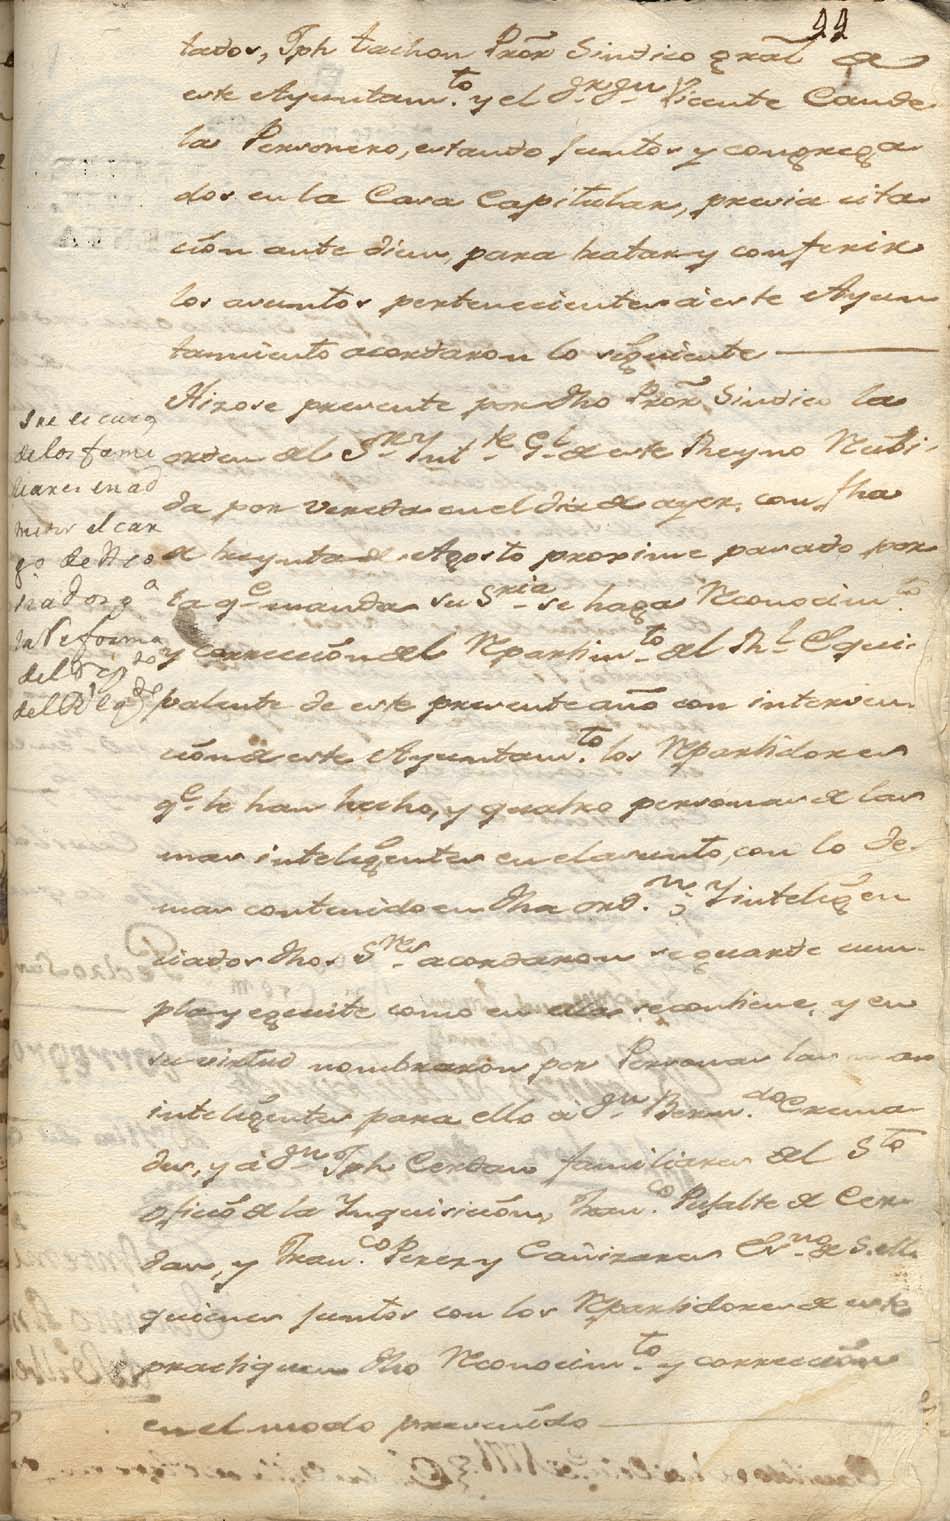 44
tados, Jph tachon Pror Sindico gral de
este Ayuntam.to y el Dr. Dn Vicente Cande
la Personero, estando juntos y congrega
dos en la Casa Capitular, previa cita
ción ante diem, para tratar y conferir
los asuntos pertenecientes à este Ayun
tamiento acordaron lo siguiente
Hizose presente por dho Pror Sindico la
orden del Sr. Yntte. Gl. de este Reyno Recibi
da por vereda en el dia de ayer, con fha
de treynta de Agosto proximo pasado por
la qe. manda su Sria. se haga Reconocim.to
y corrección del Repartim.to del Rl. Equi
valente de este presente año con interven
ción de este Ayuntam.to los Repartidores
qe. le han hecho, y quatro personas de las
mas inteligentes en el asunto, con lo de
mas contenido en dha ord.n; Y inteligen
ciados dhos Sres. acordaron se guarde cum
pla y egecute como en ella se contiene, y en
su virtud nombraron por Personas las mas
inteligentes para ello à Dn Bern.do Crema
des, y à Dn Jph Cerdan familiares del Sto
Oficio de la Ynquisición, Fran.co Pujalte de Cer
dan, y Fran.co Perez y Cañizares Esno. de S.M.
quienes juntos con los Repartidores de este
practiquen dho Reconocim.to y corrección
en el modo prevenido
de los fami
liares en ad
mitir el car
go de
la Reforma
del
del